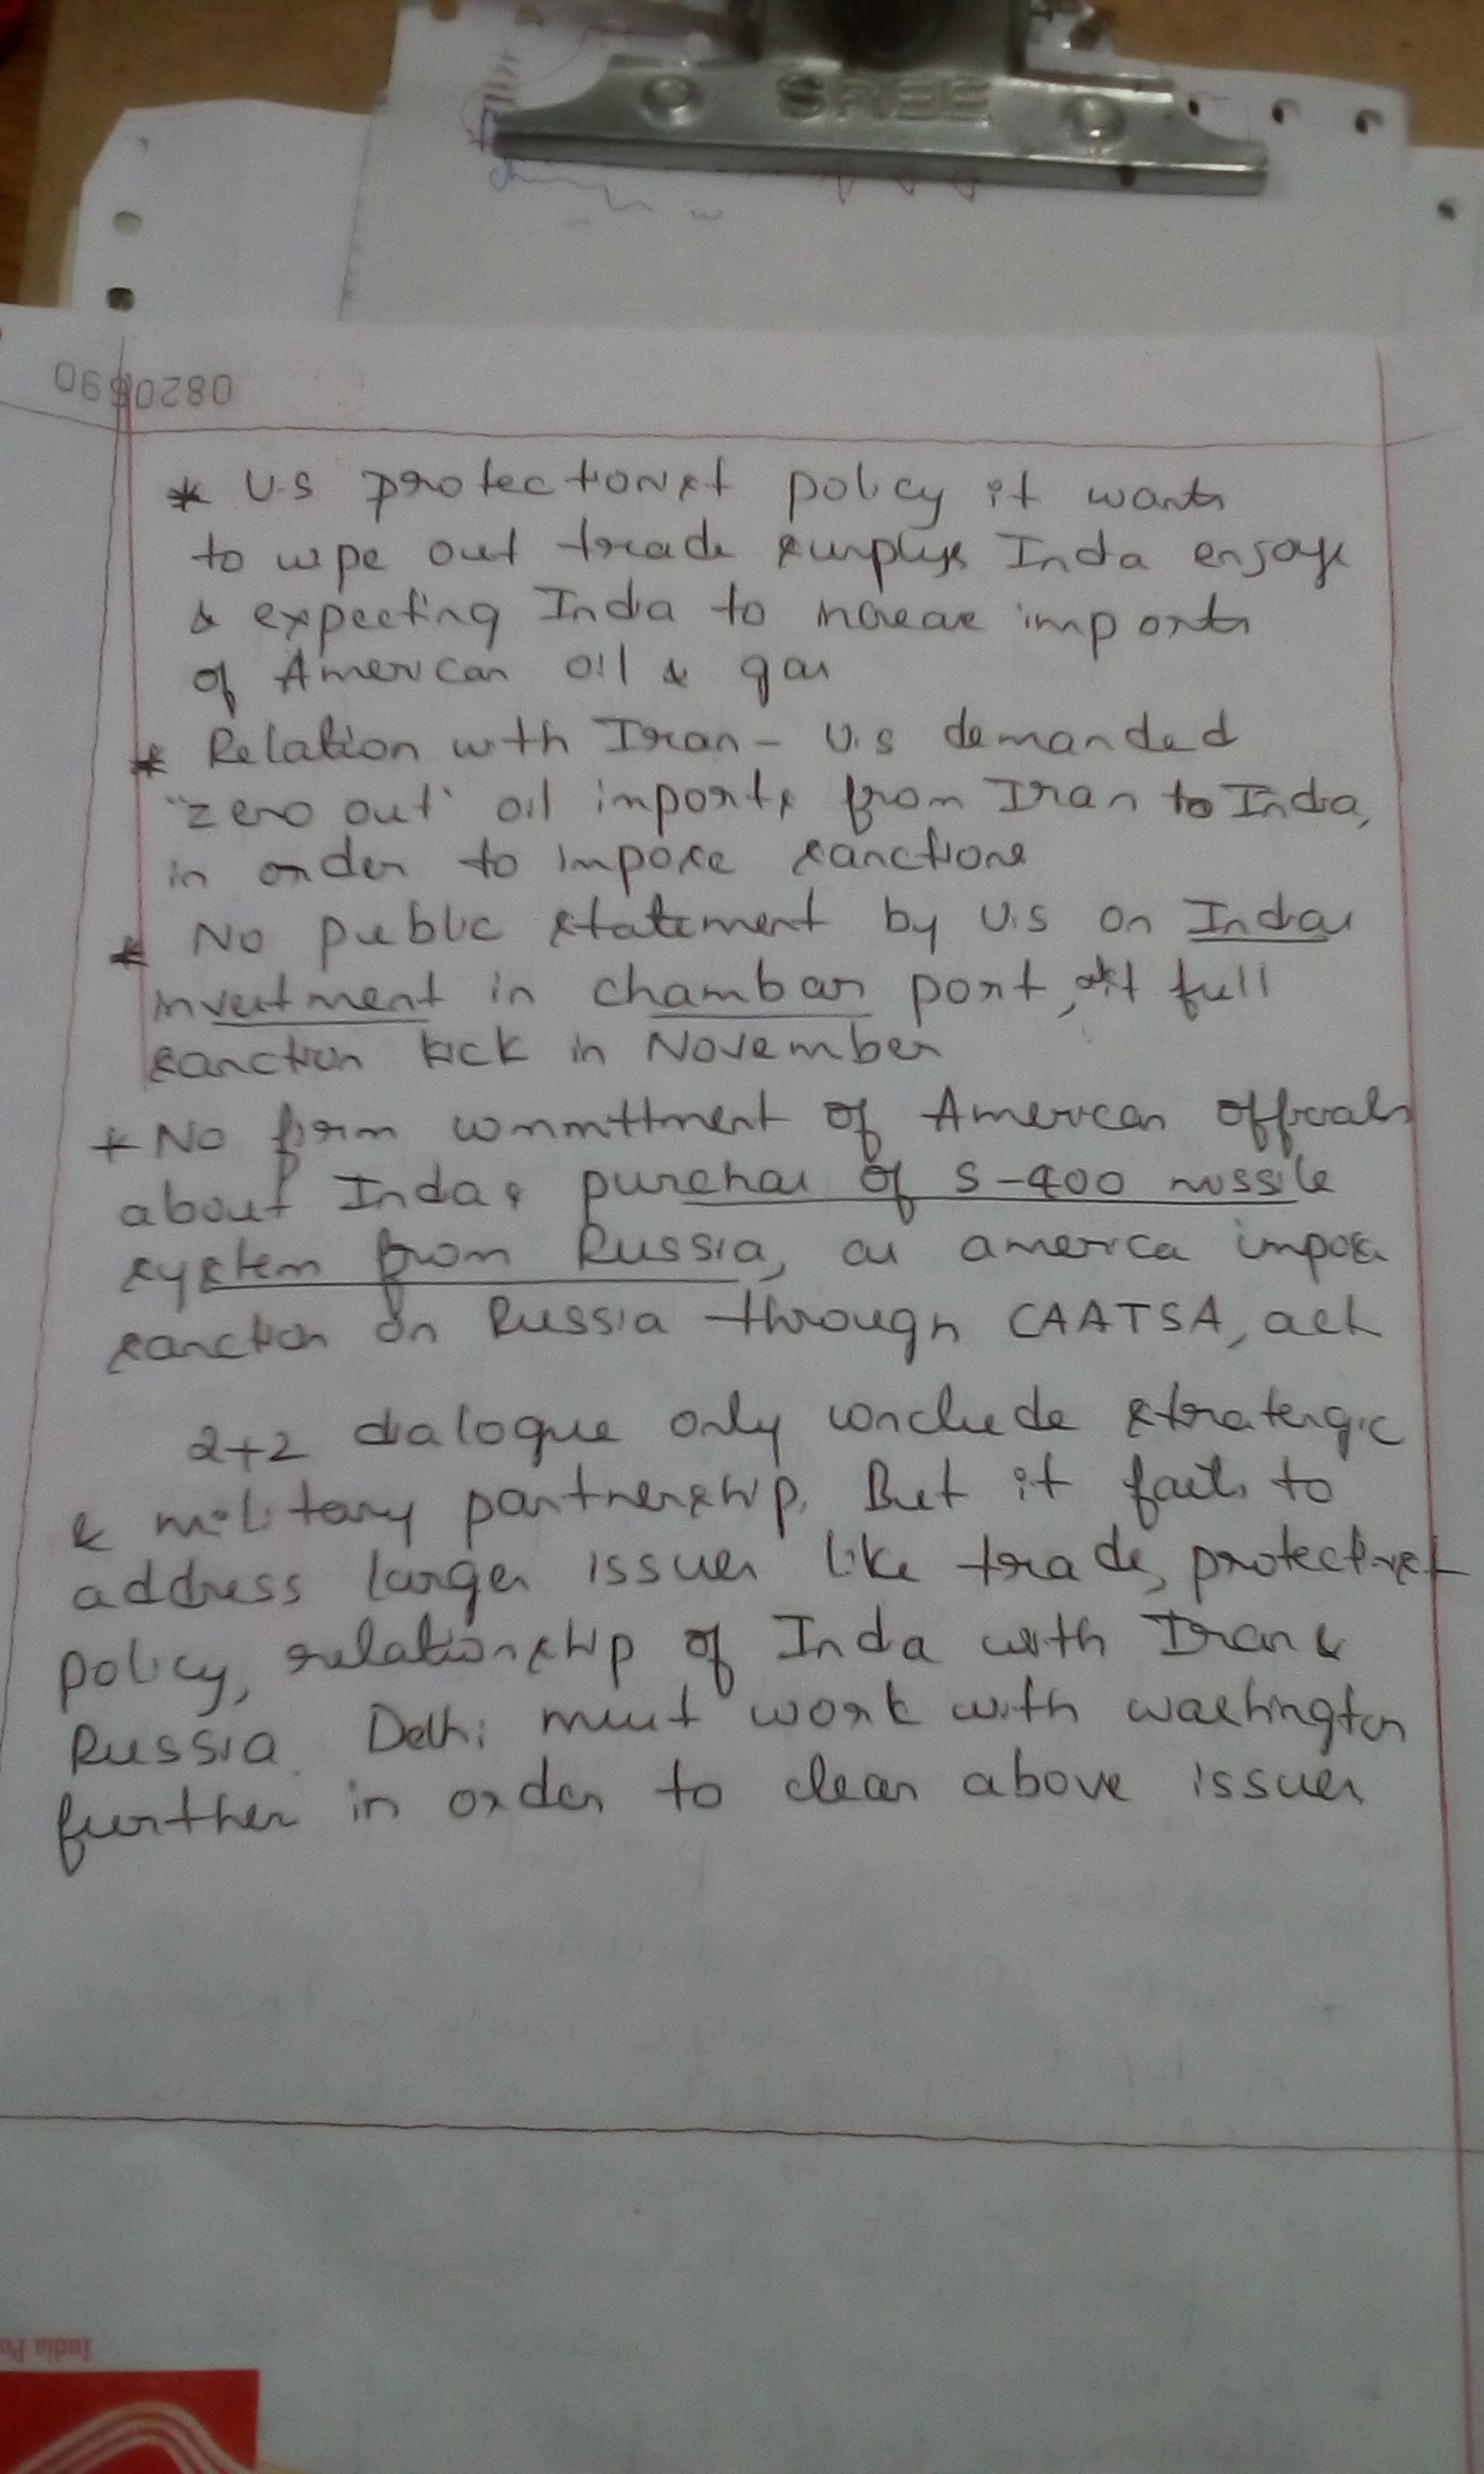 SREE
0820690
* U.S protectionist policy it wants
to wipe out trade surplus India enjoys
& expecting India to increase imports
of American oil & gas
* Relation with Iran - U.S demanded
"zero out" oil imports from Iran to India,
in order to impose sanctions
* No public statement by U.S on Indias
investment in chambar port, if full
sanction kick in November
* No firm committment of American officials
about India's purchase of S-400 missile
system from Russia, as america impose
sanction on Russia through CAATSA, act
2+2 dialogue only conclude stratergic
& military partnership. But it fails to
address larger issues like trade, protectionist
policy, relationship of India with Iran &
Russia. Delhi must work with washington
further in order to clear above issues
India Po